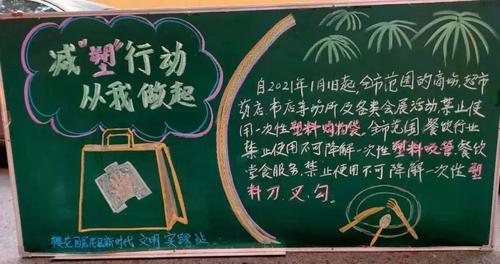 减"塑"行动
从我做起
自2021年1月1日起,全市范围的商场、超市
药店、书店等场所及各类会展活动,禁止使
用一次性塑料购物袋。全市范围餐饮行业
禁止使用不可降解一次性塑料吸管,餐饮
堂食服务,禁止使用不可降解一次性塑
料刀、叉、勺。
樱花园社区新时代 文明实践站